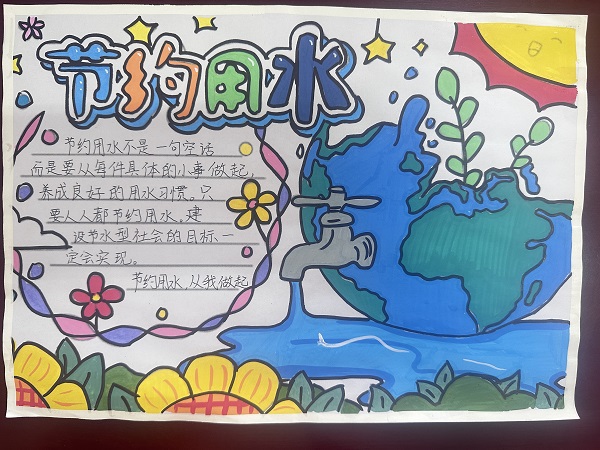 节约用水
节约用水不是一句空话
而是要从每件具体的小事做起,
养成良好的用水习惯。只
要人人都节约用水,建
设节水型社会的目标一
定会实现。
节约用水,从我做起